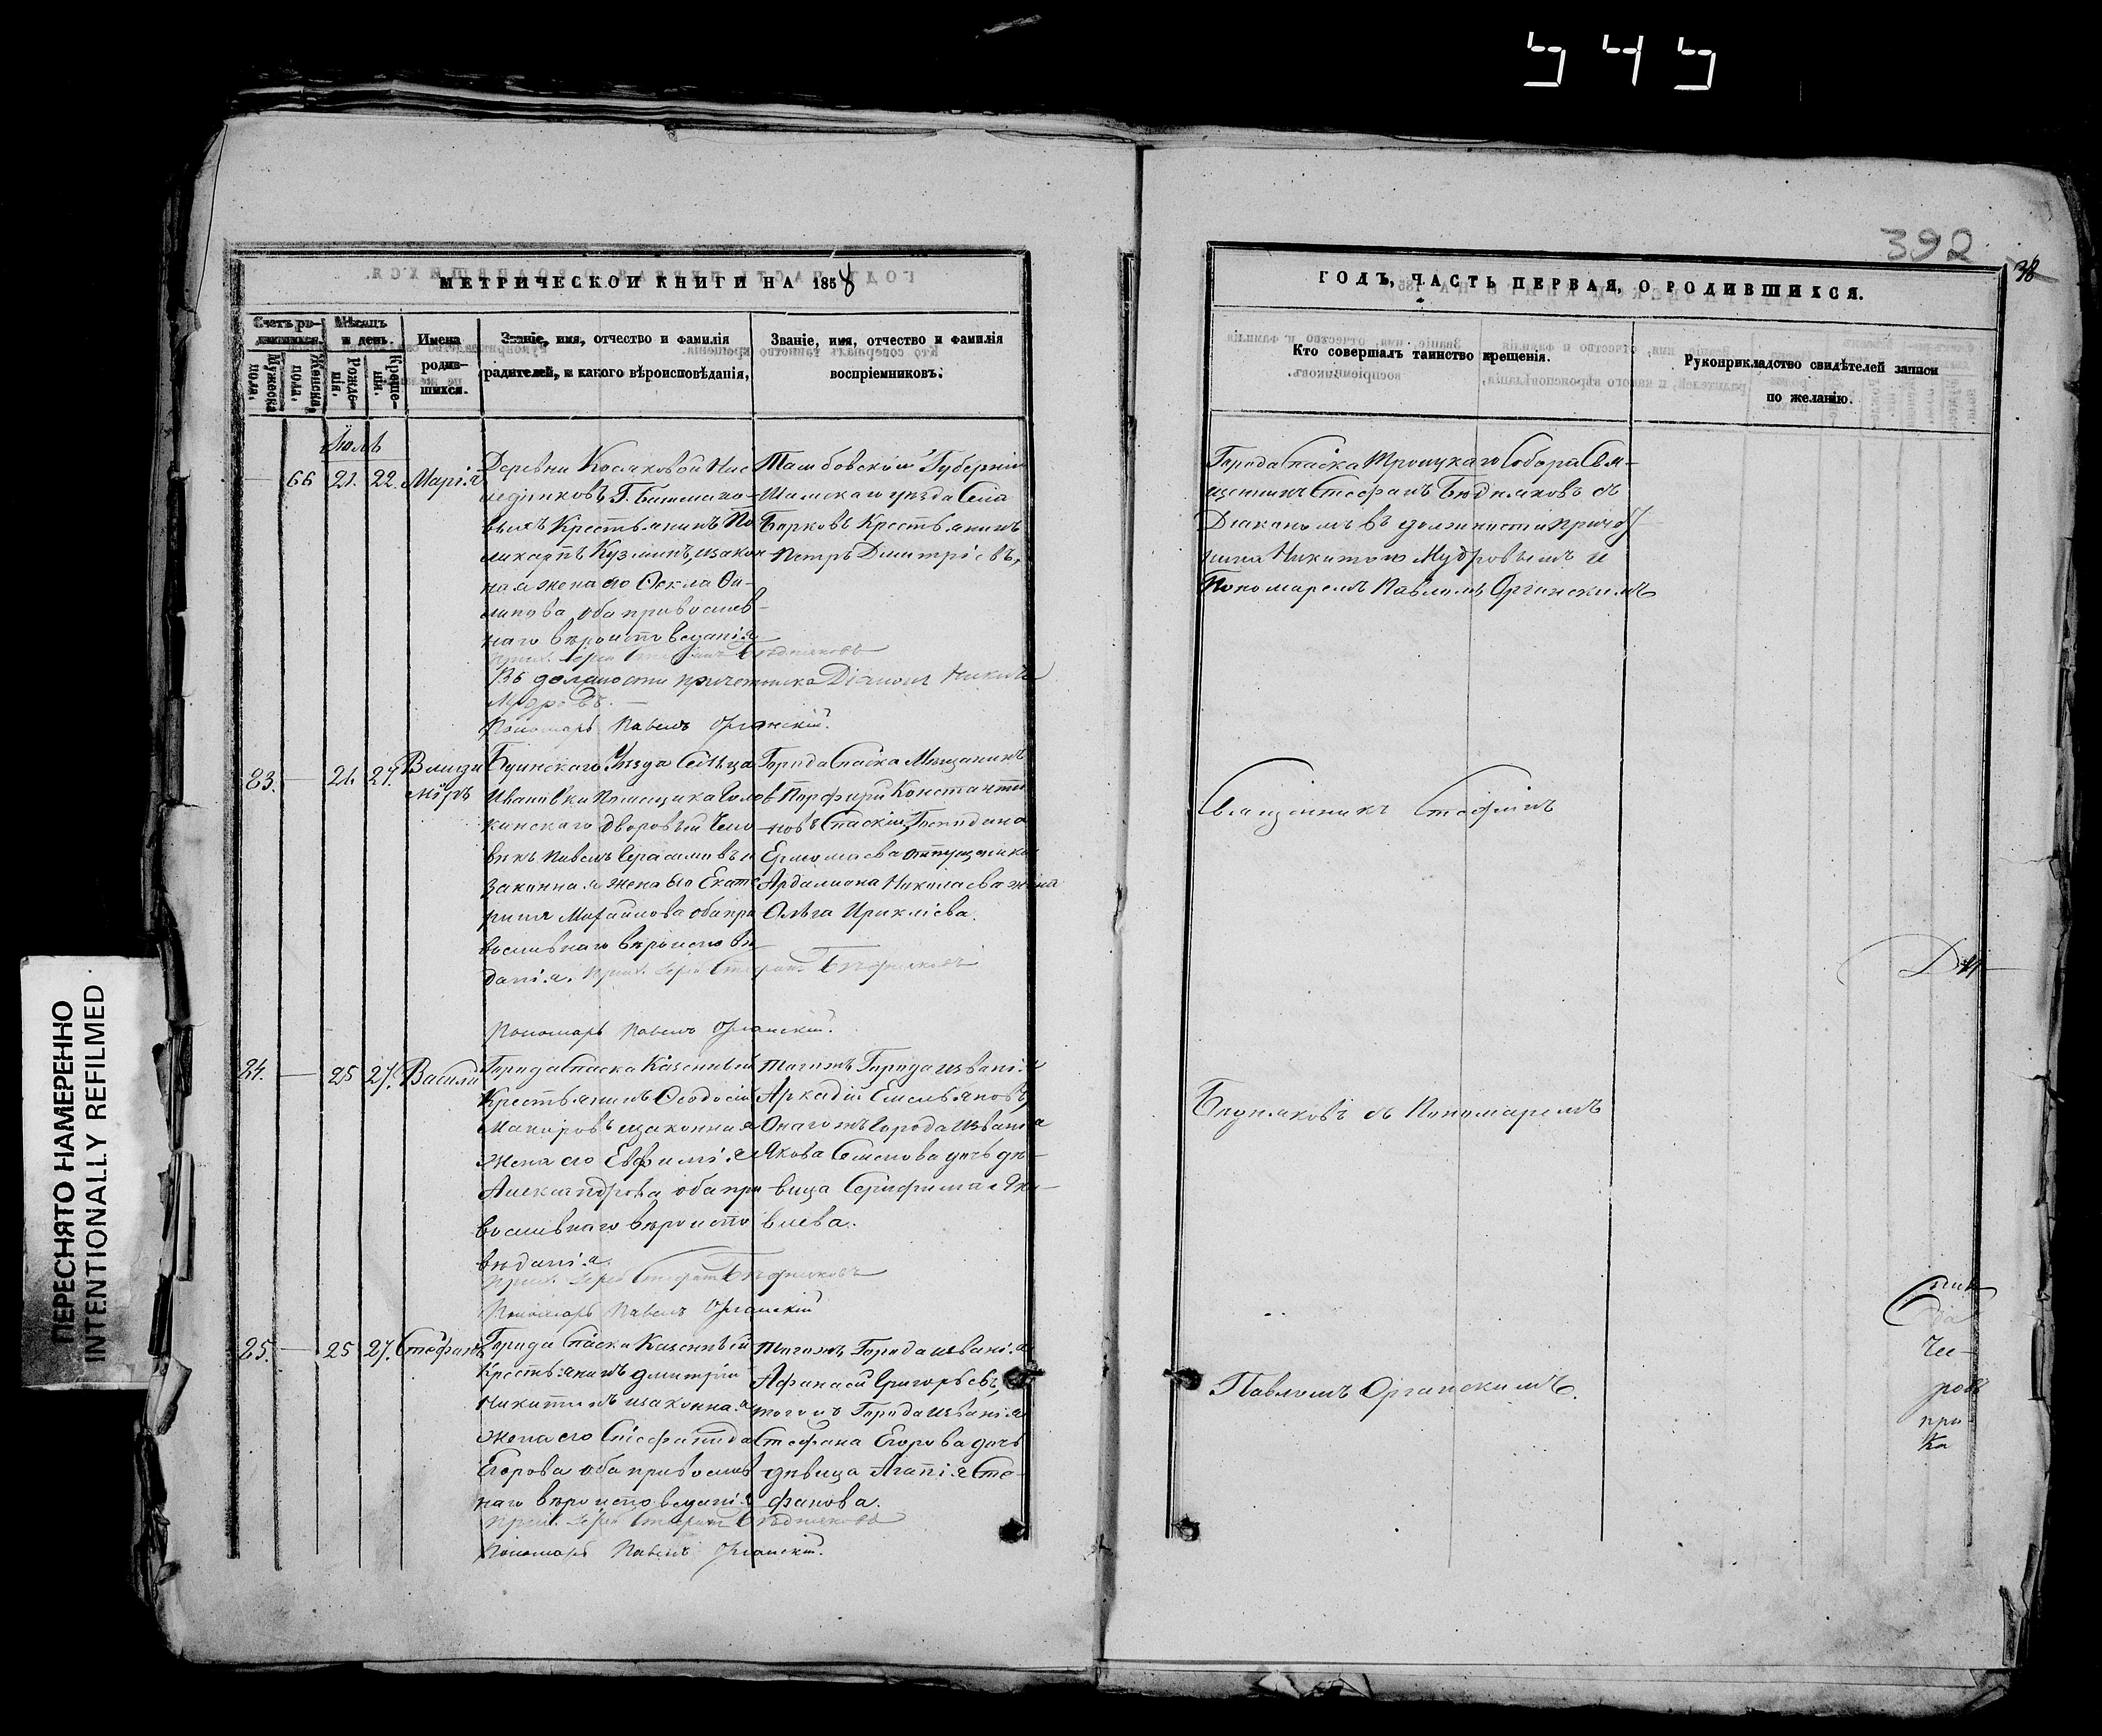 392
38
МЕТРИЧЕСКОЙ КНИГИ НА 1858
Счетъ ро-
дившихся.
Мѣсяцъ
и день.
Мужеска
пола.
Женска
пола.
Рожде-
нія.
Креще-
нія.
Имена
родив-
шихся.
Званіе, имя, отчество и фамилія
родителей, и какого вѣроисповѣданія.
Званіе, имя, отчество и фамилія
воспріемниковъ.
Іюль
66 21. 22. Марія
Деревни Косяковой Нас
ледниковъ Г.
выхъ Крестьянинъ По
ликарпъ Кузминъ, изакон
ная жена его Ѳекла Фи-
липова, оба православ-
наго вѣроисповеданія
Прих. Іерей Стефанъ Бѣдняковъ
Въ должности причетника Діаконъ Никита
Мудровъ.
Пономарь Павелъ Органскій.
Тамбовской Губерніи
Шатскаго уезда Села
Борковъ Крестьянинъ
Петръ Димитріевъ,
23. — 21. 27. Влади
міръ
Буинскаго Уезда Сельца
Ивановки Помещика
кинскаго дворовый Чело
векъ Павелъ Герасимовъ и
законная жена его Екате
рина Михайлова оба пра
вославнаго вѣроисповѣ
данія. Прих. Іерей Стефанъ Бѣдняковъ
Пономарь Павелъ Органскій.
Города Спаска Мещанинъ
Порфирій Константи
новъ Спаскій, Господина
Ермолаева отпущеника
Ардалиона Николаева жена
Ольга Ираклiева.
24. — 25 27. Василій
Города Спаска Казенный
Крестьянинъ Ѳеодосій
Макаровъ изаконная
жена его Евфимія
Александрова оба пра
вославнаго вѣроиспо
вѣданія.
Прих. Іерей Стефанъ Бѣдняковъ
Пономарь Павелъ Органскій
тогожъ Города Званія
Аркадій Емельяновъ,
Онагожъ Города Званія
Якова Семенова дочь дѣ-
вица Серафима Яко-
влева.
25. — 25 27. Стефанъ
Города Спаска Казенный
Крестьянинъ Дмитрій
Никитинъ изаконная
жена его Степанида
Егорова оба православ
наго вѣроисповеданія
Прих. Іерей Стефанъ Бѣдняковъ
Пономарь Павелъ Органскій.
тогожъ Города Званія
Афанасій Григорьевъ,
тогожъ Города Званія
Стефана Егорова дочь
дѣвица Агапія Сте-
фанова.
ГОДЪ, ЧАСТЬ ПЕРВАЯ, О РОДИВШИХСЯ.
Кто совершалъ таинство крещенія.
Рукоприкладство свидѣтелей записи
по желанію.
Города Спаска Троицкаго Собора Свя-
щенникъ Стефанъ Бѣдняковъ съ
Діакономъ въ должности
Никитою Мудровымъ и
Пономаремъ Павломъ Органскимъ
Священникъ Стефанъ
Бѣдняковъ съ Пономаремъ
Павломъ Органскимъ.
ПЕРЕСНЯТО НАМЕРЕННО
INTENTIONALLY REFILMED